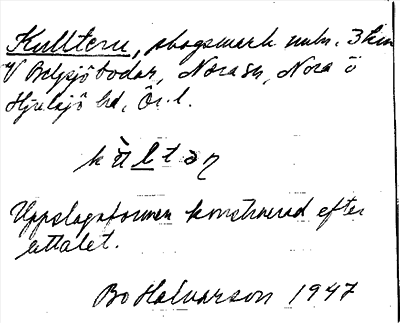 Kulltern, skogsmark mln. 3 km
V Belgsjöbodar, Nora sn, Nora o
Hjulsjö hd, Ör. l.
Uppslagsformen konstruerad efter
uttalet.
Bo Halvarson 1947